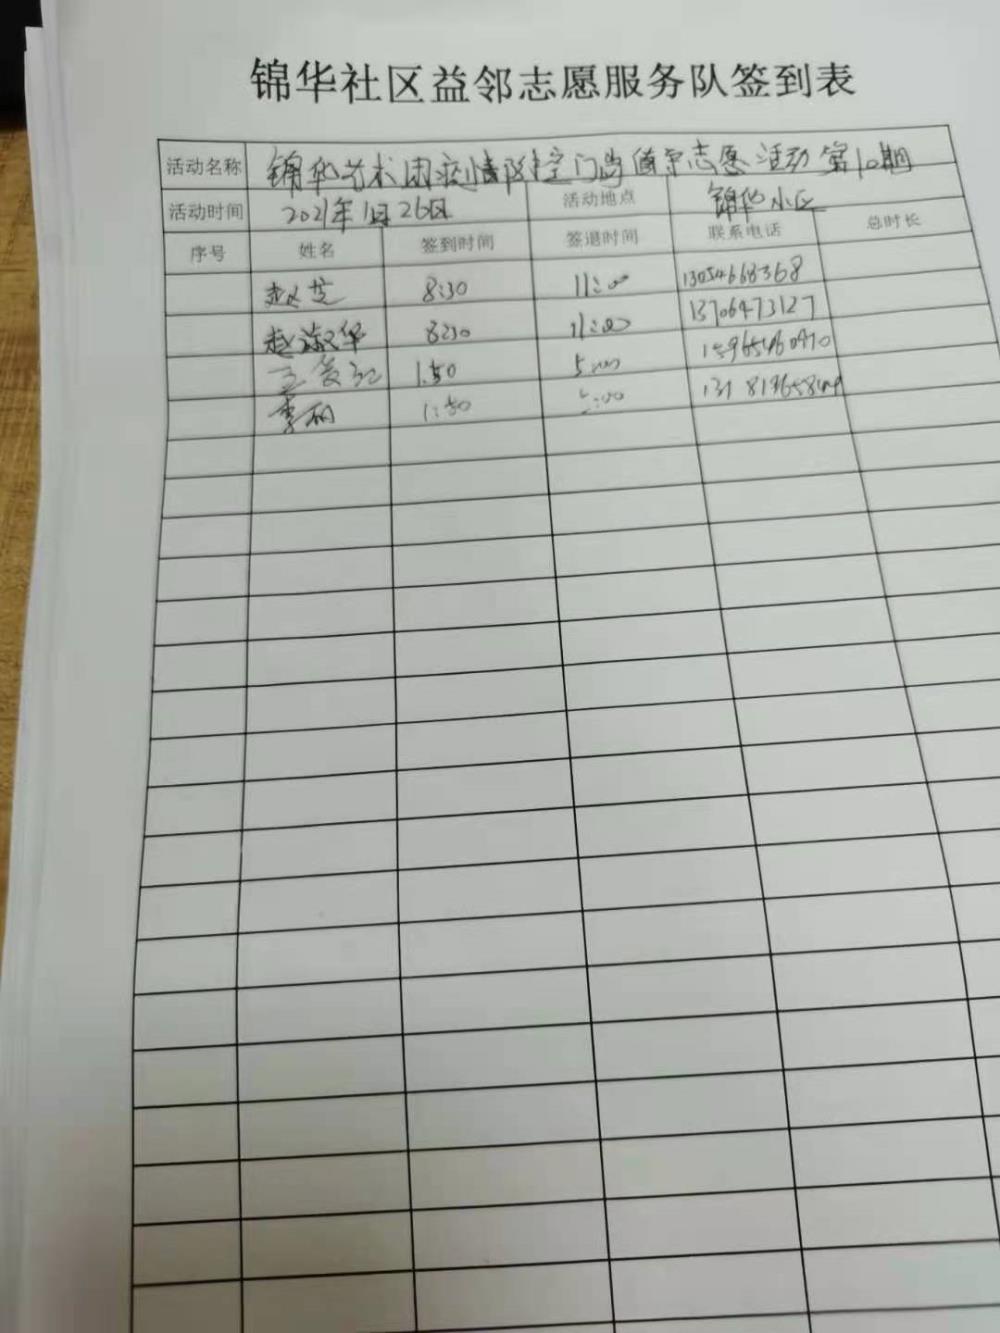 锦华社区益邻志愿服务队签到表
活动名称 锦华艺术团疫情防控门岗值守志愿活动第10期
活动时间 2021年1月26日 活动地点 锦华小区
序号 姓名 签到时间 签退时间 联系电话 总时长
赵芝 8:30 11:00 13054668368
赵淑华 8:30 11:00 13706473127
1:50 5:00
李丽 1:50 5:00